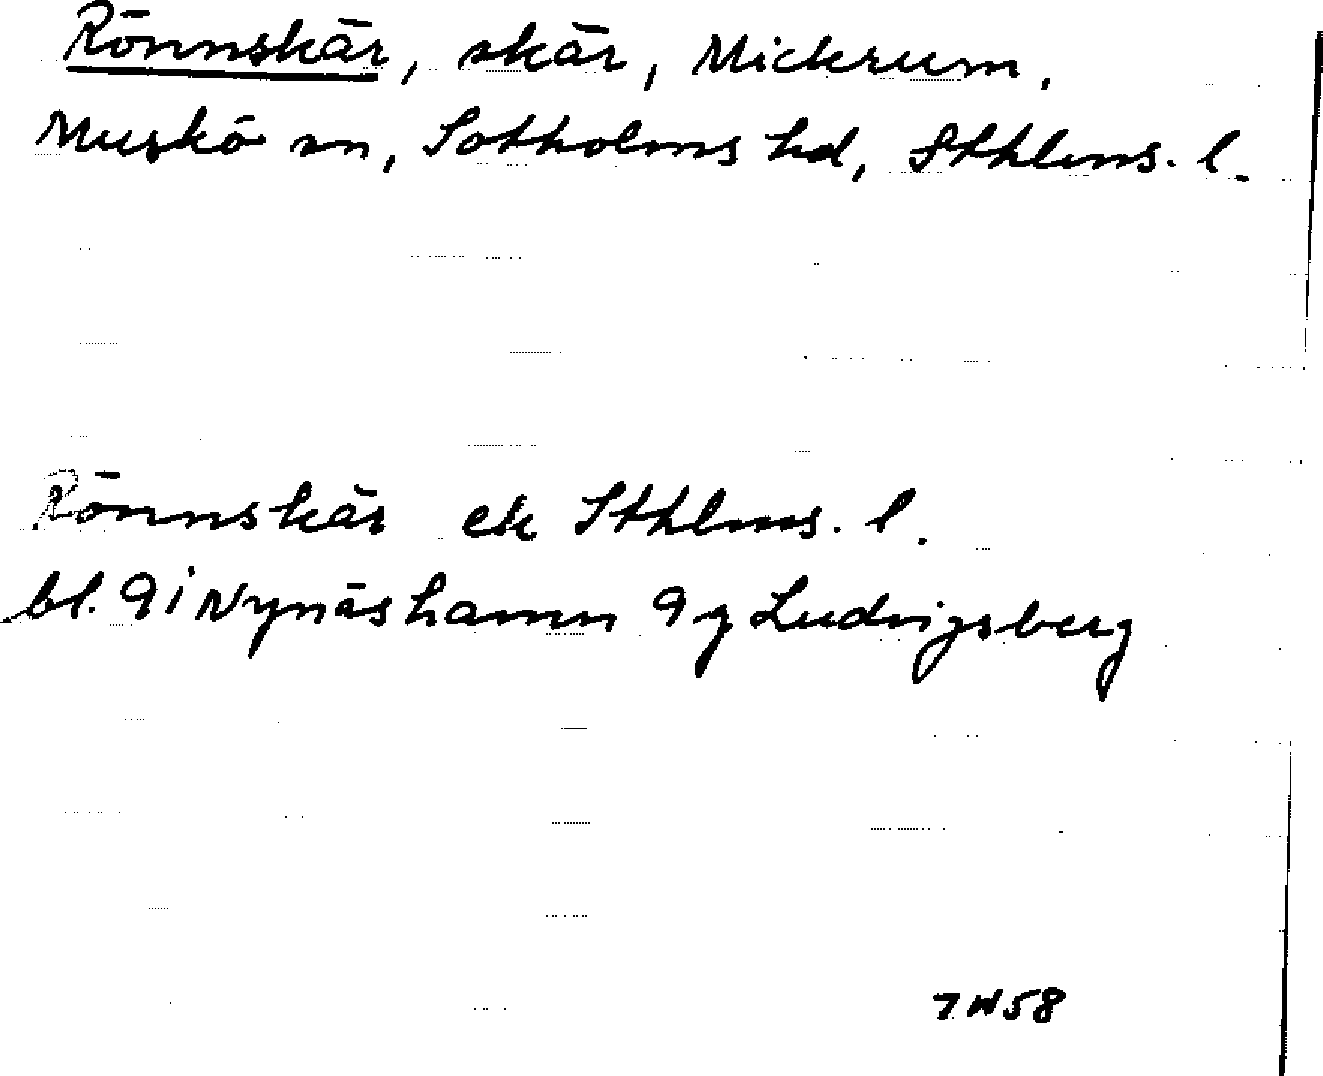 Rönnskär, skär, Mickrum,
Muskö sn, Sotholms hd, Sthlms. l.
Rönnskär ek Sthlms. l.
bl. 9 i Nynäshamn 9 g Ludvigsberg
7 W 58